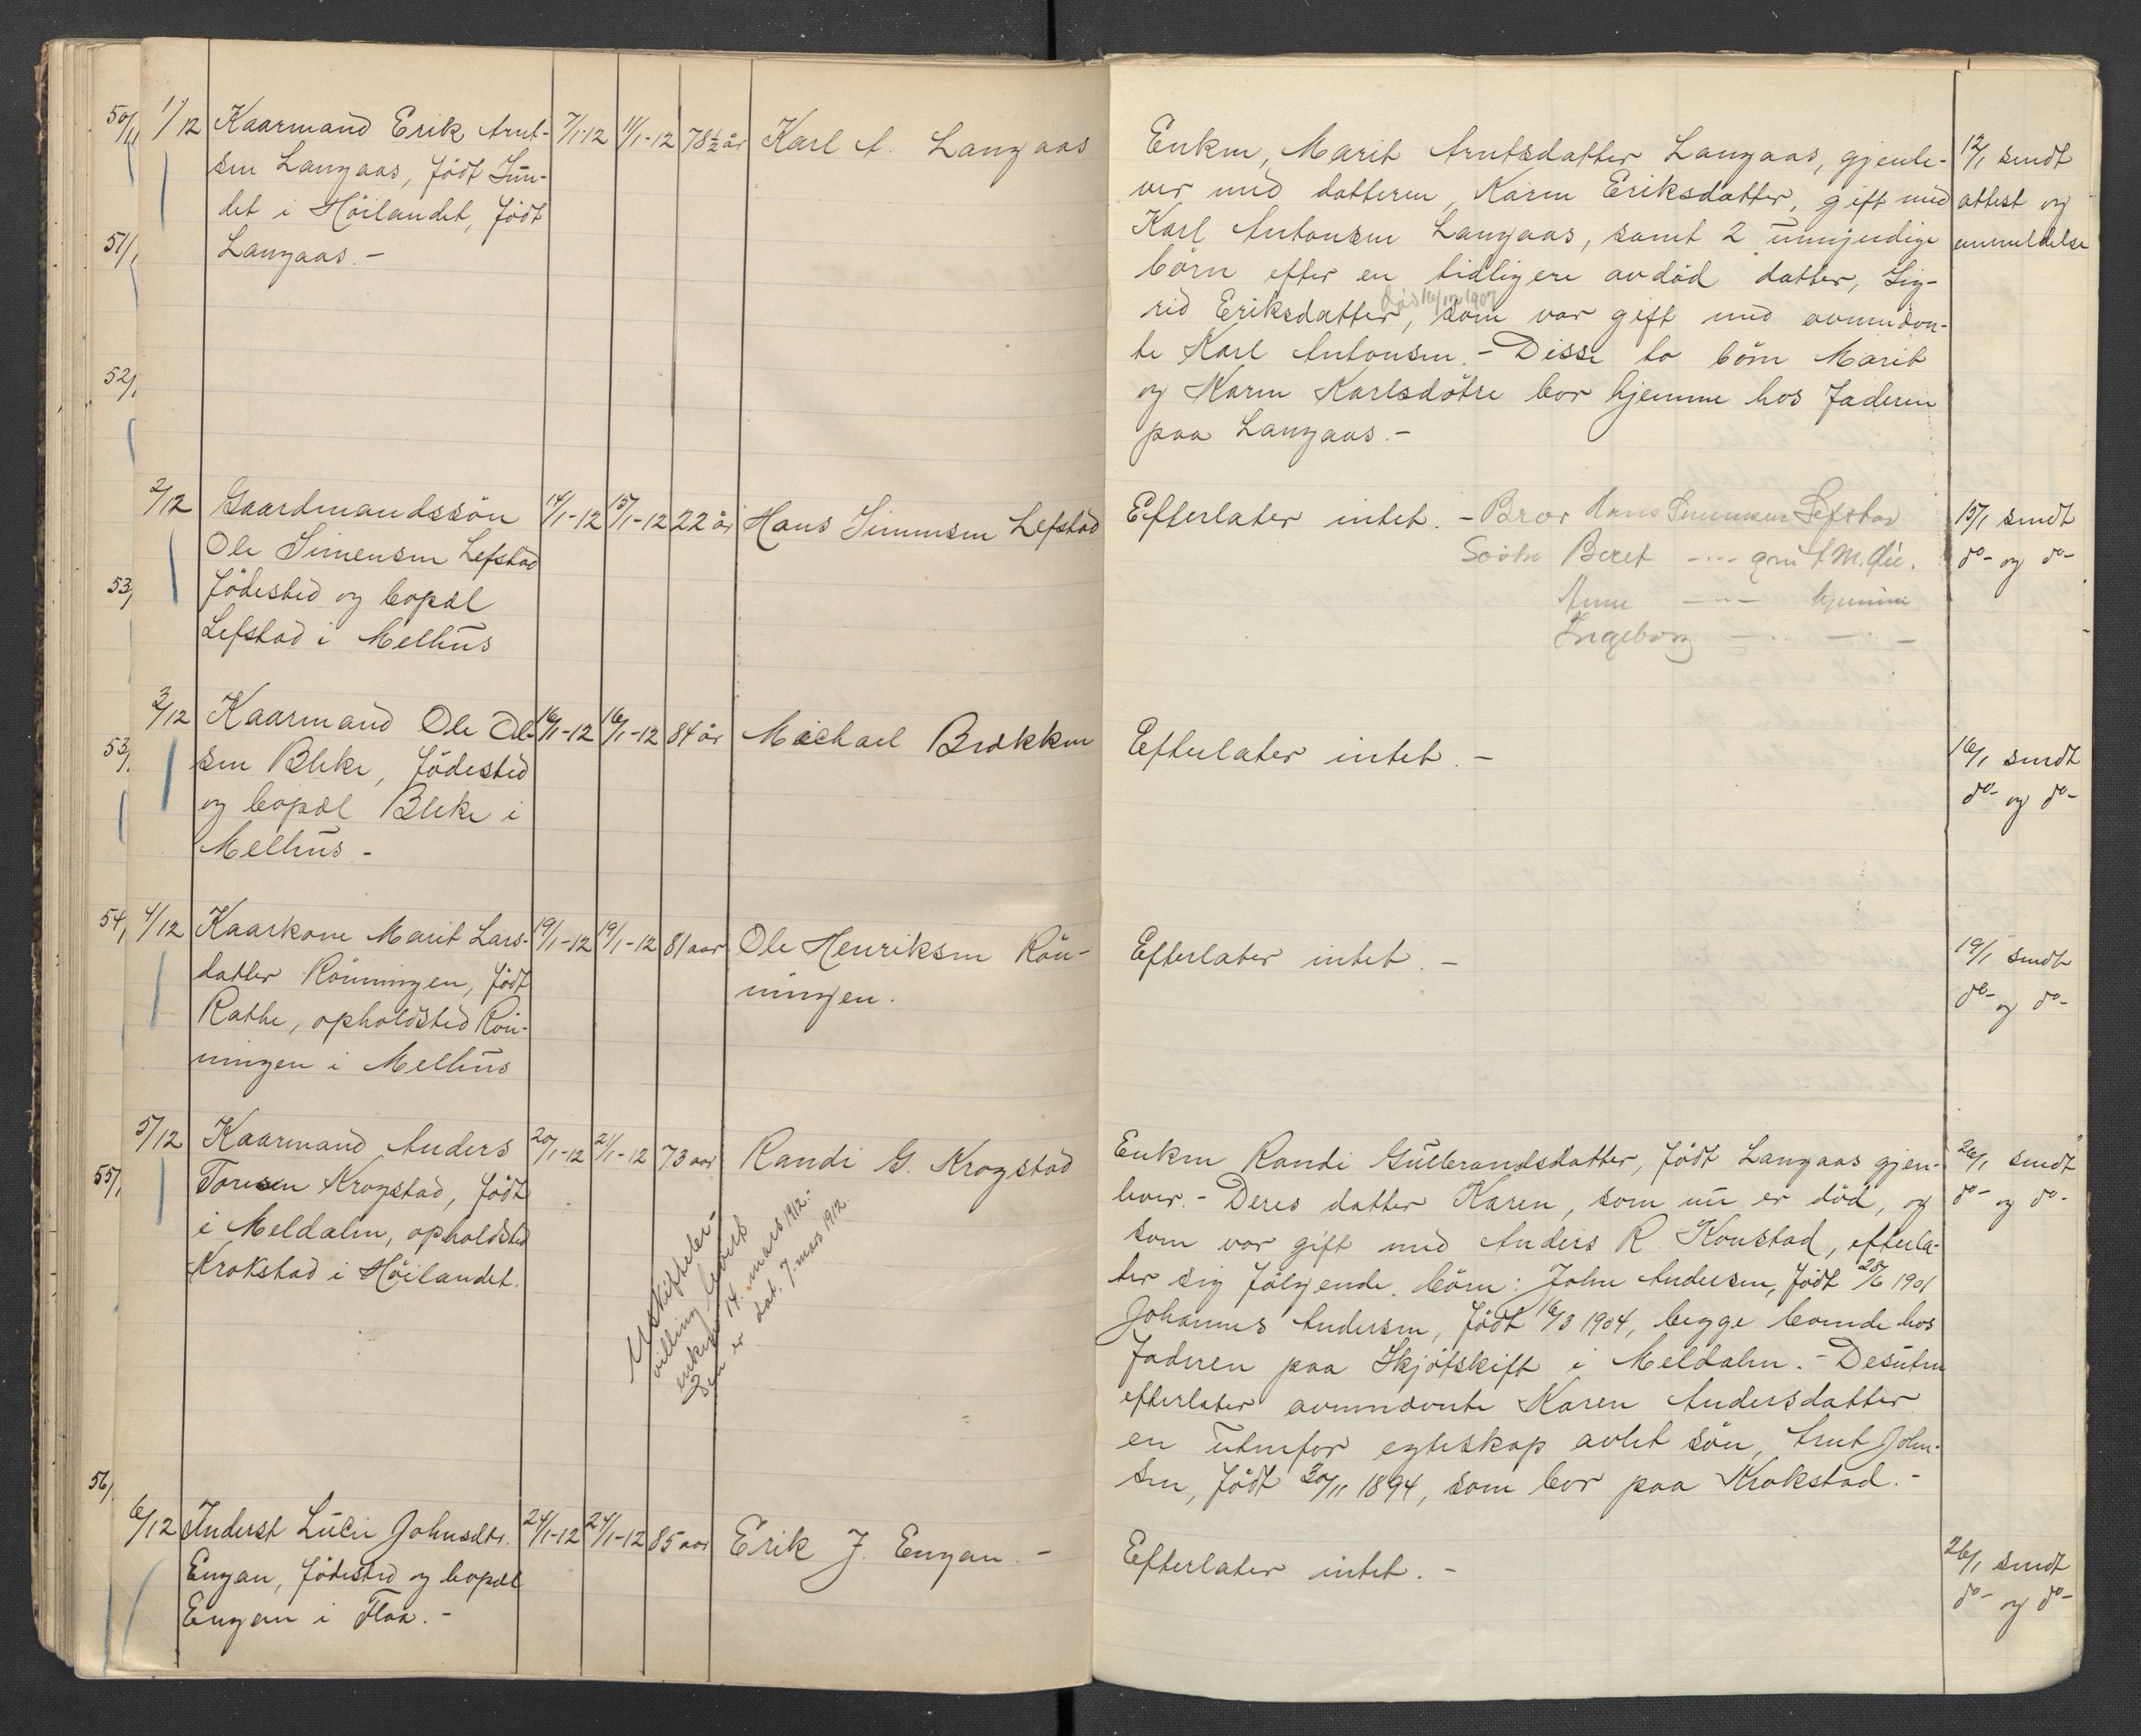 50/11
51/
52/
53/
53/
54/
55/
56/
1/12 Kaarmand Erik Arnt- 7/1-12 11/1-12 78½ år Karl A. Langaas
sen Langaas, født Sun-
det i Høilandet, født
Langaas. -
Enken, Marit Arntsdatter Langaas, gjenle-
ver med datteren, Karen Eriksdatter, gift med
Karl Antonsen Langaas, samt 2 umyndige
børn efter en tidligere avdød datter, Sig-
død 16/12 1907
rid Eriksdatter, som var gift med ovennævn-
te Karl Antonsen. - Disse to børn Marit
og Karen Karlsdøtre bor hjemme hos faderen
paa Langaas. -
12/1 sendt
attest og
anmeldelse
2/12 Gaardmandssøn 14/1-12 15/1-12 22 år Hans Simensen Lefstad
Ole Simensen Lefstad
fødested og bopæl
Lefstad i Melhus
Efterlater intet. - Bror Hans Simensen Lefstad
Søstre Beret - - - gm
Anne - - - hjemme
Ingeborg - - - -
15/1 sendt
do- og do-
3/12 Kaarmand Ole Ol- 16/1-12 16/1-12 84 år Michael Brækken
sen Bleke, fødested
og bopæl Bleke i
Melhus -
Efterlater intet. -
16/1 sendt
do- og do-
4/12 Kaarkone Marit Lars- 19/1-12 19/1-12 81 aar Ole Henriksen Røn-
datter Rønningen, født ningen.
Rathe, opholdsted Røn-
ningen i Melhus
Efterlater intet. -
19/1 sendt
do- og do-
5/12 Kaarmand Anders 20/1-12 21/1-12 73 aar Randi G. Krogstad
Toresen Krogstad, født
i Meldalen, opholdsted
Krokstad i Høilandet.
Uskiftebe-
villing levert
enken 14. mars 1912.-
Den er dat. 7. mars 1912.
Enken Randi Gulbrandsdatter, født Langaas gjen-
lever. - Deres datter Karen, som nu er død, og
som var gift med Anders R. Konstad, efterla-
ter sig følgende børn: John Andersen, født 25/6 1901
Johannes Andersen, født 16/3 1904, begge boende hos
faderen paa Skjøtskift i Meldalen. - Desuten
efterlater ovennævnte Karen Andersdatter
en utenfor egteskap avlet søn, Arnt John-
sen, født 30/11 1894, som bor paa Krokstad. -
26/1 sendt
do- og do-
6/12 Inderst Lucie Johnsdtr. 24/1-12 24/1-12 85 aar Erik J. Engan. -
Engan, fødested og bopæl
Engan i Flaa. -
Efterlater intet. -
26/1 sendt
do- og do-